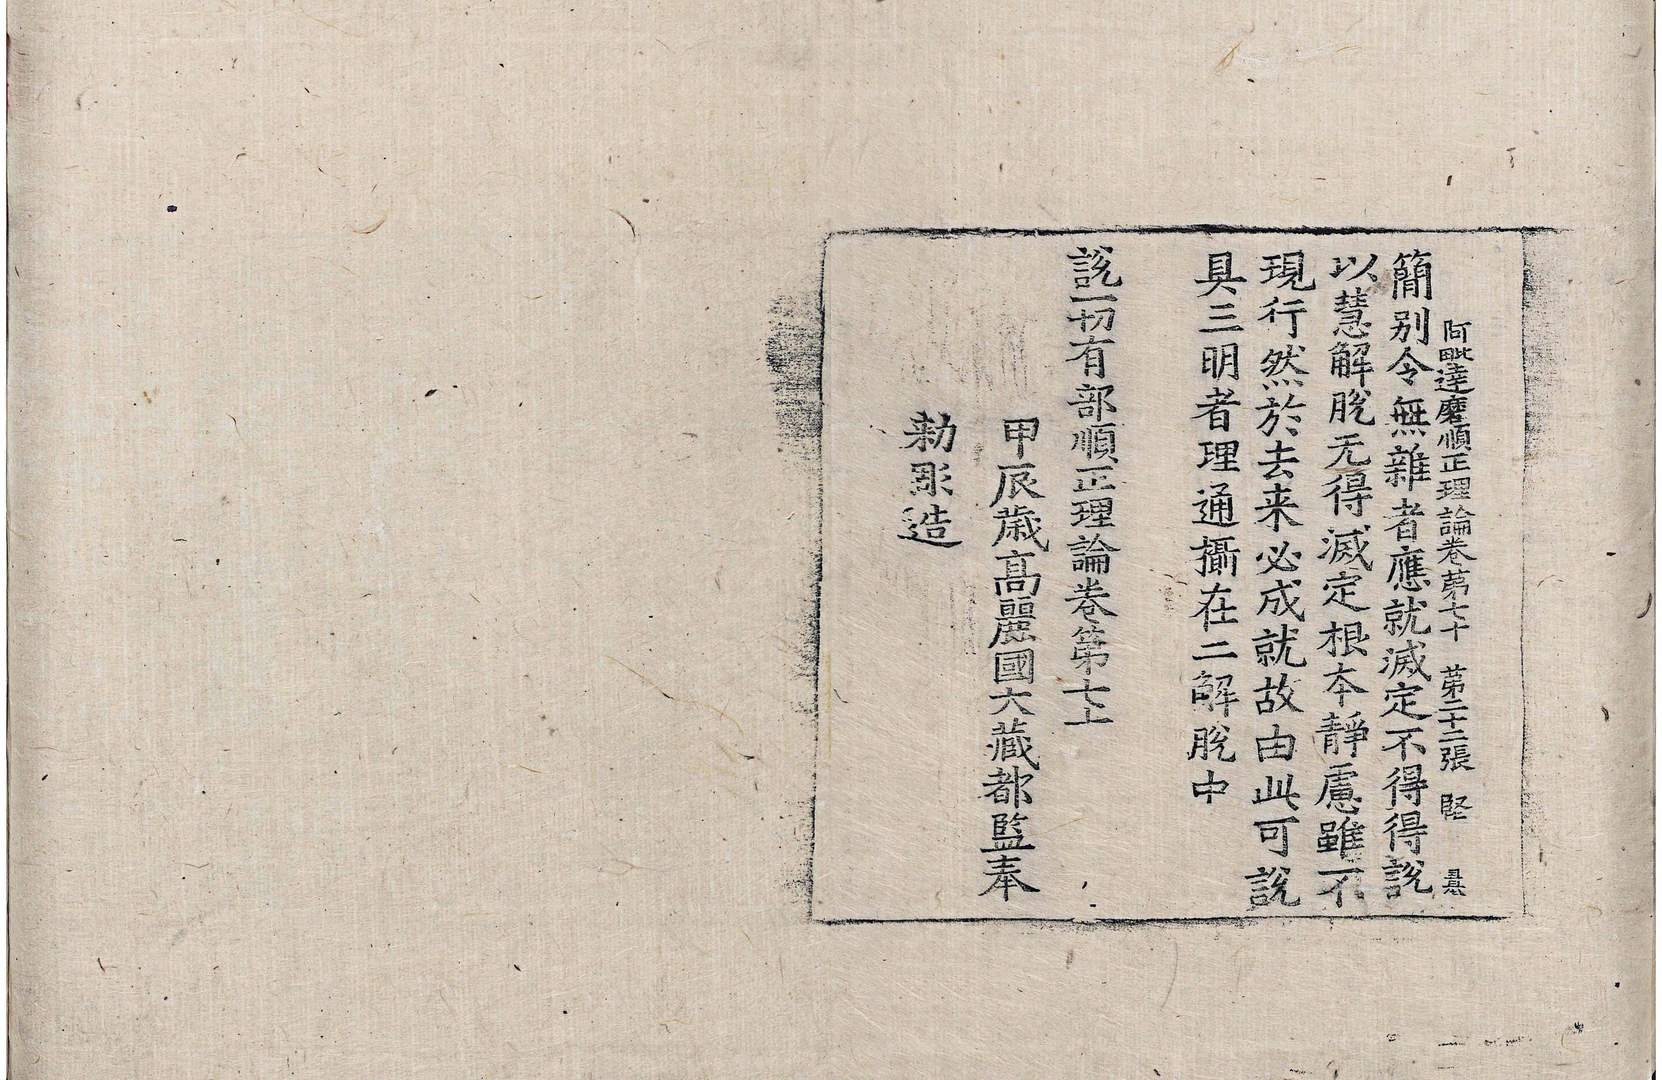 阿毗達磨順正理論卷第七十 第二十二張 堅
簡別令無雜者應就滅定不得得說
以慧解脫无得滅定根本靜慮雖不
現行然於去来必成就故由此可說
具三明者理通攝在二解脫中
說一切有部順正理論卷第七十
甲辰歲高麗國大藏都監奉
勑彫造